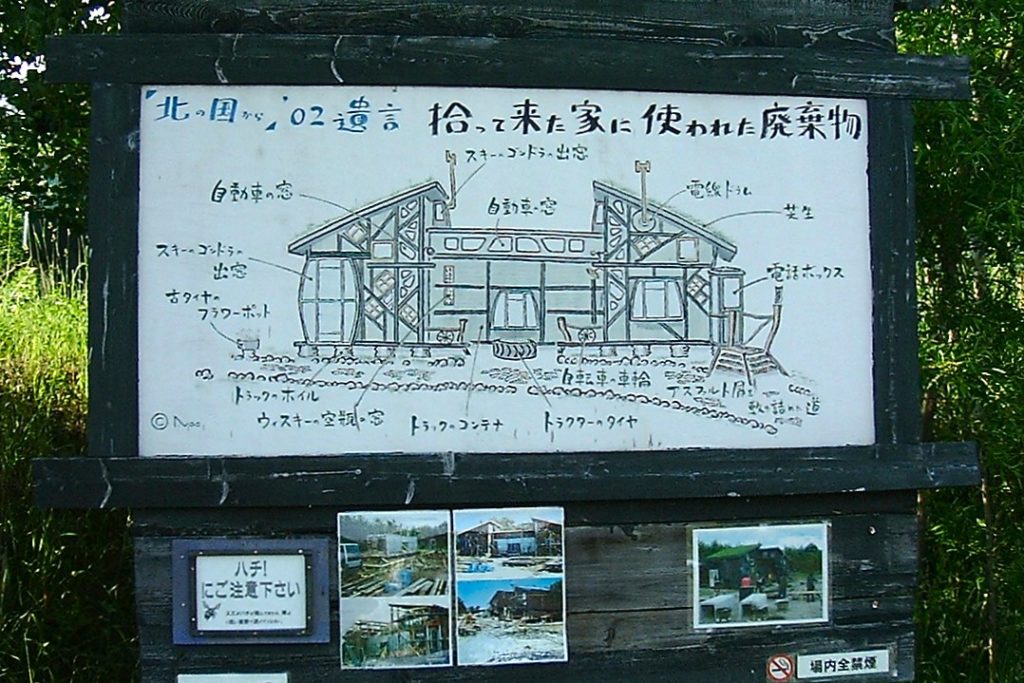 「北の国から」'02遺言 拾って来た家に使われた廃棄物
スキーのゴンドラの出窓
自動車の窓
自動車の窓
電線ドラム
芝生
スキーのゴンドラの
出窓
電話ボックス
古タイヤの
フラワーポット
自転車の車輪
トラックのホイル
アスファルト屑を
敷き詰めた道
ウィスキーの空瓶の窓
トラックのコンテナ
トラクターのタイヤ
ハチ!
にご注意下さい
場内全禁煙